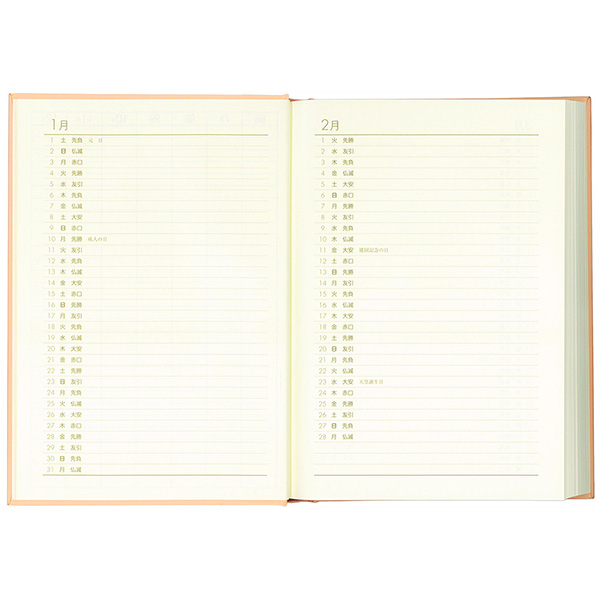 1月
1 土 先負 元日
2 日 仏滅
3 月 赤口
4 火 先勝
5 水 友引
6 木 先負
7 金 仏滅
8 土 大安
9 日 赤口
10 月 先勝 成人の日
11 火 友引
12 水 先負
13 木 仏滅
14 金 大安
15 土 赤口
16 日 先勝
17 月 友引
18 火 先負
19 水 仏滅
20 木 大安
21 金 赤口
22 土 先勝
23 日 友引
24 月 先負
25 火 仏滅
26 水 大安
27 木 赤口
28 金 先勝
29 土 友引
30 日 先負
31 月 仏滅
2月
1 火 先勝
2 水 友引
3 木 先負
4 金 仏滅
5 土 大安
6 日 赤口
7 月 先勝
8 火 友引
9 水 先負
10 木 仏滅
11 金 大安 建国記念の日
12 土 赤口
13 日 先勝
14 月 友引
15 火 先負
16 水 仏滅
17 木 大安
18 金 赤口
19 土 先勝
20 日 友引
21 月 先負
22 火 仏滅
23 水 大安 天皇誕生日
24 木 赤口
25 金 先勝
26 土 友引
27 日 先負
28 月 仏滅